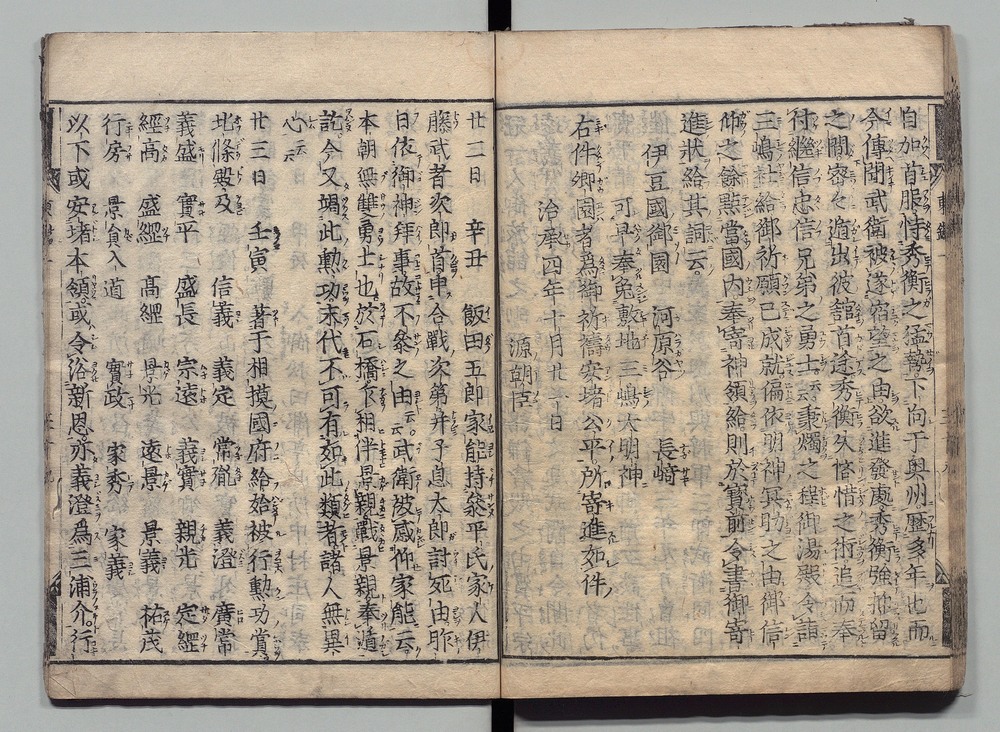 自加首服恃秀衡之猛勢下向于奥州歴多年也而
今傳聞武衛被遂宿望之由欲進發處秀衡強抑留
之間密々遁出彼舘首途秀衡失恡惜之術追而奉
付継信忠信兄弟之勇士云云秉燭之程御湯殿令詣
三嶋社給御祈願已成就偏依明神冥助之由御信
仰之餘點當國内奉寄神領給則於寳前令書御寄
進狀給其詞云
伊豆國御園 河原谷 長﨑
可早奉免敷地三嶋大明神
右件御園者為御祈禱安堵公平所寄進如件
治承四年十月廿一日
源朝臣
廿二日 辛丑 飯田五郎家能持參平氏家人伊
藤武者次郎首申合戰次第并子息太郎討死由昨
日依御神拜事故不參之由云云武衛被感仰家能云
本朝無雙勇士也於石橋乍相伴景親戰景親奉遁
訖今又竭此勳功末代不可有如此類者諸人無異
心云云
廿三日 壬寅 著于相摸國府給始被行勳功賞
北條殿及 信義 義定 常胤 義澄 廣常
義盛 實平 盛長 宗遠 義實 親光 定綱
經高 盛綱 高綱 景光 遠景 景義 祐茂
行房 景員入道 實政 家秀 家義
以下或安堵本領或令浴新恩亦義澄為三浦介行